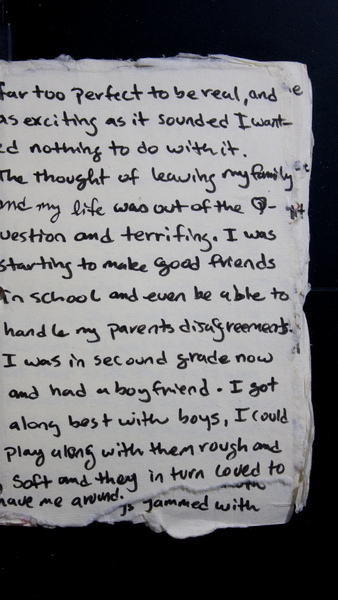 far too perfect to be real, and
as exciting as it sounded I want-
ed nothing to do with it.
The thought of leaving my family
and my life was out of the Q-
uestion and terrifing. I was
starting to make good friends
in school and even be able to
handle my parents disagreements.
I was in secound grade now
and had a boyfriend. I got
along best with boys, I could
play along with them rough and
soft and they in turn loved to
have me around.
jammed with